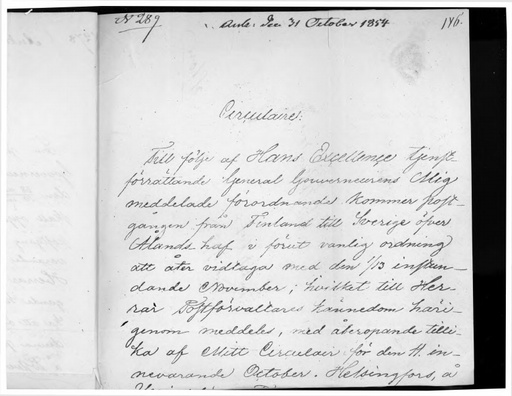 N 289
Ank: den 31 October 1854
146.
Circulaire:
Till följe af Hans Excellence tjenst-
förrättande General Gouverneurens Mig
meddelade förordnande kommer post-
gången från Finland till Sverige öfver
Ålands haf i förut vanlig ordning
att åter vidtaga med den 1/13 instun-
dande November; hvilket till Her-
rar Postförvaltares kännedom häri-
genom meddeles, med återopande tilli-
ka af Mitt Circulair för den 4. in-
nevarande October. Helsingfors, å